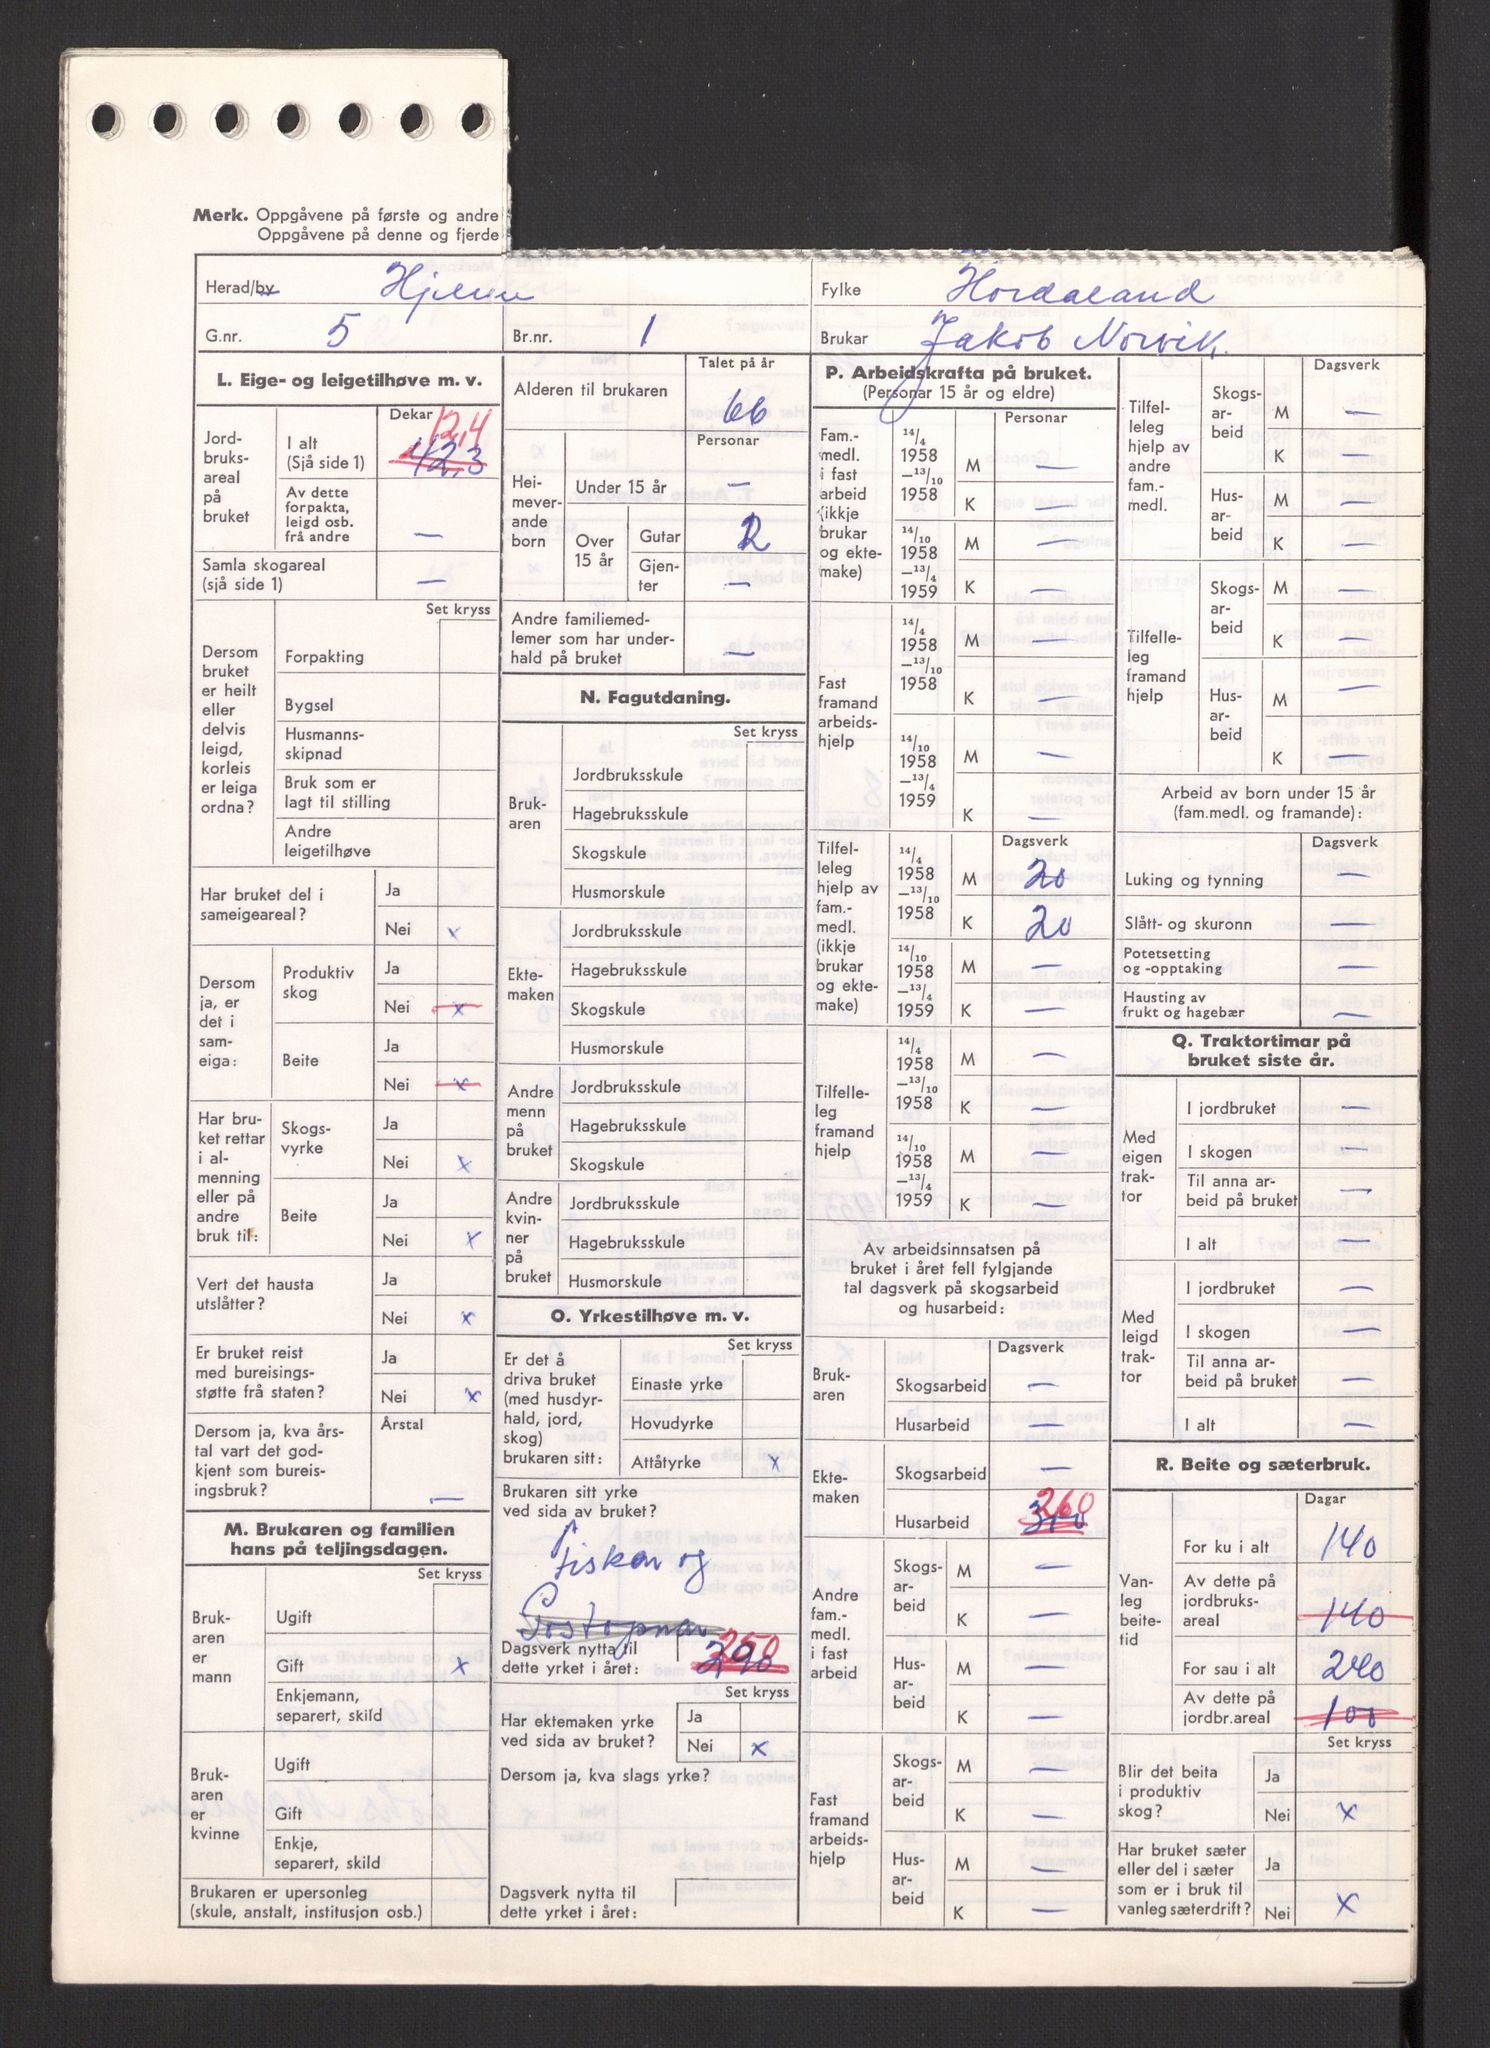 Merk. Oppgåvene på første og andre
Oppgåvene på denne og fjerde
Herad/by Hjelme
Fylke Hordaland
G.nr. 5 Br.nr. 1
Brukar Jakob Norvik
L. Eige- og leigetilhøve m. v.
Dekar
Jord-
bruks-
areal
på
bruket
I alt
(Sjå side 1)
12,4
42,3
Av dette
forpakta,
leigd osb.
frå andre —
Samla skogareal
(sjå side 1) —
Set kryss
Dersom
bruket
er heilt
eller
delvis
leigd,
korleis
er leiga
ordna?
Forpakting
Bygsel
Husmanns-
skipnad
Bruk som er
lagt til stilling
Andre
leigetilhøve
Har bruket del i
sameigeareal?
Ja
Nei x
Dersom
ja, er
det i
sam-
eiga:
Produktiv
skog
Ja
Nei x
Beite
Ja
Nei x
Har bru-
ket rettar
i al-
menning
eller på
andre
bruk til:
Skogs-
vyrke
Ja
Nei x
Beite
Ja
Nei x
Vert det hausta
utslåtter?
Ja
Nei x
Er bruket reist
med bureisings-
støtte frå staten?
Ja
Nei x
Dersom ja, kva års-
tal vart det god-
kjent som bureis-
ingsbruk?
Årstal
—
M. Brukaren og familien
hans på teljingsdagen.
Set kryss
Bruk-
aren
er
mann
Ugift
Gift x
Enkjemann,
separert, skild
Bruk-
aren
er
kvinne
Ugift
Gift
Enkje,
separert, skild
Brukaren er upersonleg
(skule, anstalt, institusjon osb.)
Talet på år
Alderen til brukaren 66
Personar
Hei-
mever-
ande
born
Under 15 år —
Over
15 år
Gutar 2
Gjen-
ter —
Andre familiemed-
lemer som har under-
hald på bruket —
N. Fagutdaning.
Set kryss
Bruk-
aren
Jordbruksskule
Hagebruksskule
Skogskule
Husmorskule
Ekte-
maken
Jordbruksskule
Hagebruksskule
Skogskule
Husmorskule
Andre
menn
på
bruket
Jordbruksskule
Hagebruksskule
Skogskule
Andre
kvin-
ner
på
bruket
Jordbruksskule
Hagebruksskule
Husmorskule
O. Yrkestilhøve m. v.
Set kryss
Er det å
driva bruket
(med husdyr-
hald, jord,
skog)
brukaren sitt:
Einaste yrke
Hovudyrke
Attåtyrke x
Brukaren sitt yrke
ved sida av bruket?
Fisker og
Postopnar
Dagsverk nytta til
dette yrket i året:
250
290
Set kryss
Har ektemaken yrke
ved sida av bruket?
Ja
Nei x
Dersom ja, kva slags yrke?
Dagsverk nytta til
dette yrket i året:
P. Arbeidskrafta på bruket.
(Personar 15 år og eldre)
Personar
Fam.-
medl.
i fast
arbeid
(ikkje
brukar
og ekte-
make)
14/4
1958
—13/10
1958
M —
K —
14/10
1958
—13/4
1959
M —
K —
Fast
framand
arbeids-
hjelp
14/4
1958
—13/10
1958
M —
K —
14/10
1958
—13/4
1959
M —
K —
Dagsverk
Tilfel-
leleg
hjelp av
fam.-
medl.
(ikkje
brukar
og ekte-
make)
14/4
1958
—13/10
1958
M 20
K 20
14/10
1958
—13/4
1959
M —
K —
Tilfelle-
leg
framand
hjelp
14/4
1958
—13/10
1958
M —
K —
14/10
1958
—13/4
1959
M —
K —
Av arbeidsinnsatsen på
bruket i året fell fylgjande
tal dagsverk på skogsarbeid
og husarbeid:
Dagsverk
Bruk-
aren
Skogsarbeid —
Husarbeid —
Ekte-
maken
Skogsarbeid —
Husarbeid
260
300
Andre
fam.-
medl.
i fast
arbeid
Skogs-
ar-
beid
M —
K —
Hus-
ar-
beid
M —
K —
Fast
framand
arbeids-
hjelp
Skogs-
ar-
beid
M —
K —
Hus-
ar-
beid
M —
K —
Dagsverk
Tilfel-
leleg
hjelp av
andre
fam.-
medl.
Skogs-
ar-
beid
M —
K —
Hus-
ar-
beid
M —
K —
Tilfelle-
leg
framand
hjelp
Skogs-
ar-
beid
M —
K —
Hus-
ar-
beid
M —
K —
Arbeid av born under 15 år
(fam.medl. og framande):
Dagsverk
Luking og tynning —
Slått- og skuronn —
Potetsetting
og -opptaking —
Hausting av
frukt og hagebær —
Q. Traktortimar på
bruket siste år.
Med
eigen
trak-
tor
I jordbruket —
I skogen —
Til anna ar-
beid på bruket —
I alt —
Med
leigd
trak-
tor
I jordbruket —
I skogen —
Til anna ar-
beid på bruket —
I alt —
R. Beite og sæterbruk.
Dagar
Van-
leg
beite-
tid
For ku i alt 140
Av dette på
jordbruks-
areal 140
For sau i alt 240
Av dette på
jordbr.areal 100
Set kryss
Blir det beita
i produktiv
skog?
Ja
Nei x
Har bruket sæter
eller del i sæter
som er i bruk til
vanleg sæterdrift?
Ja
Nei x